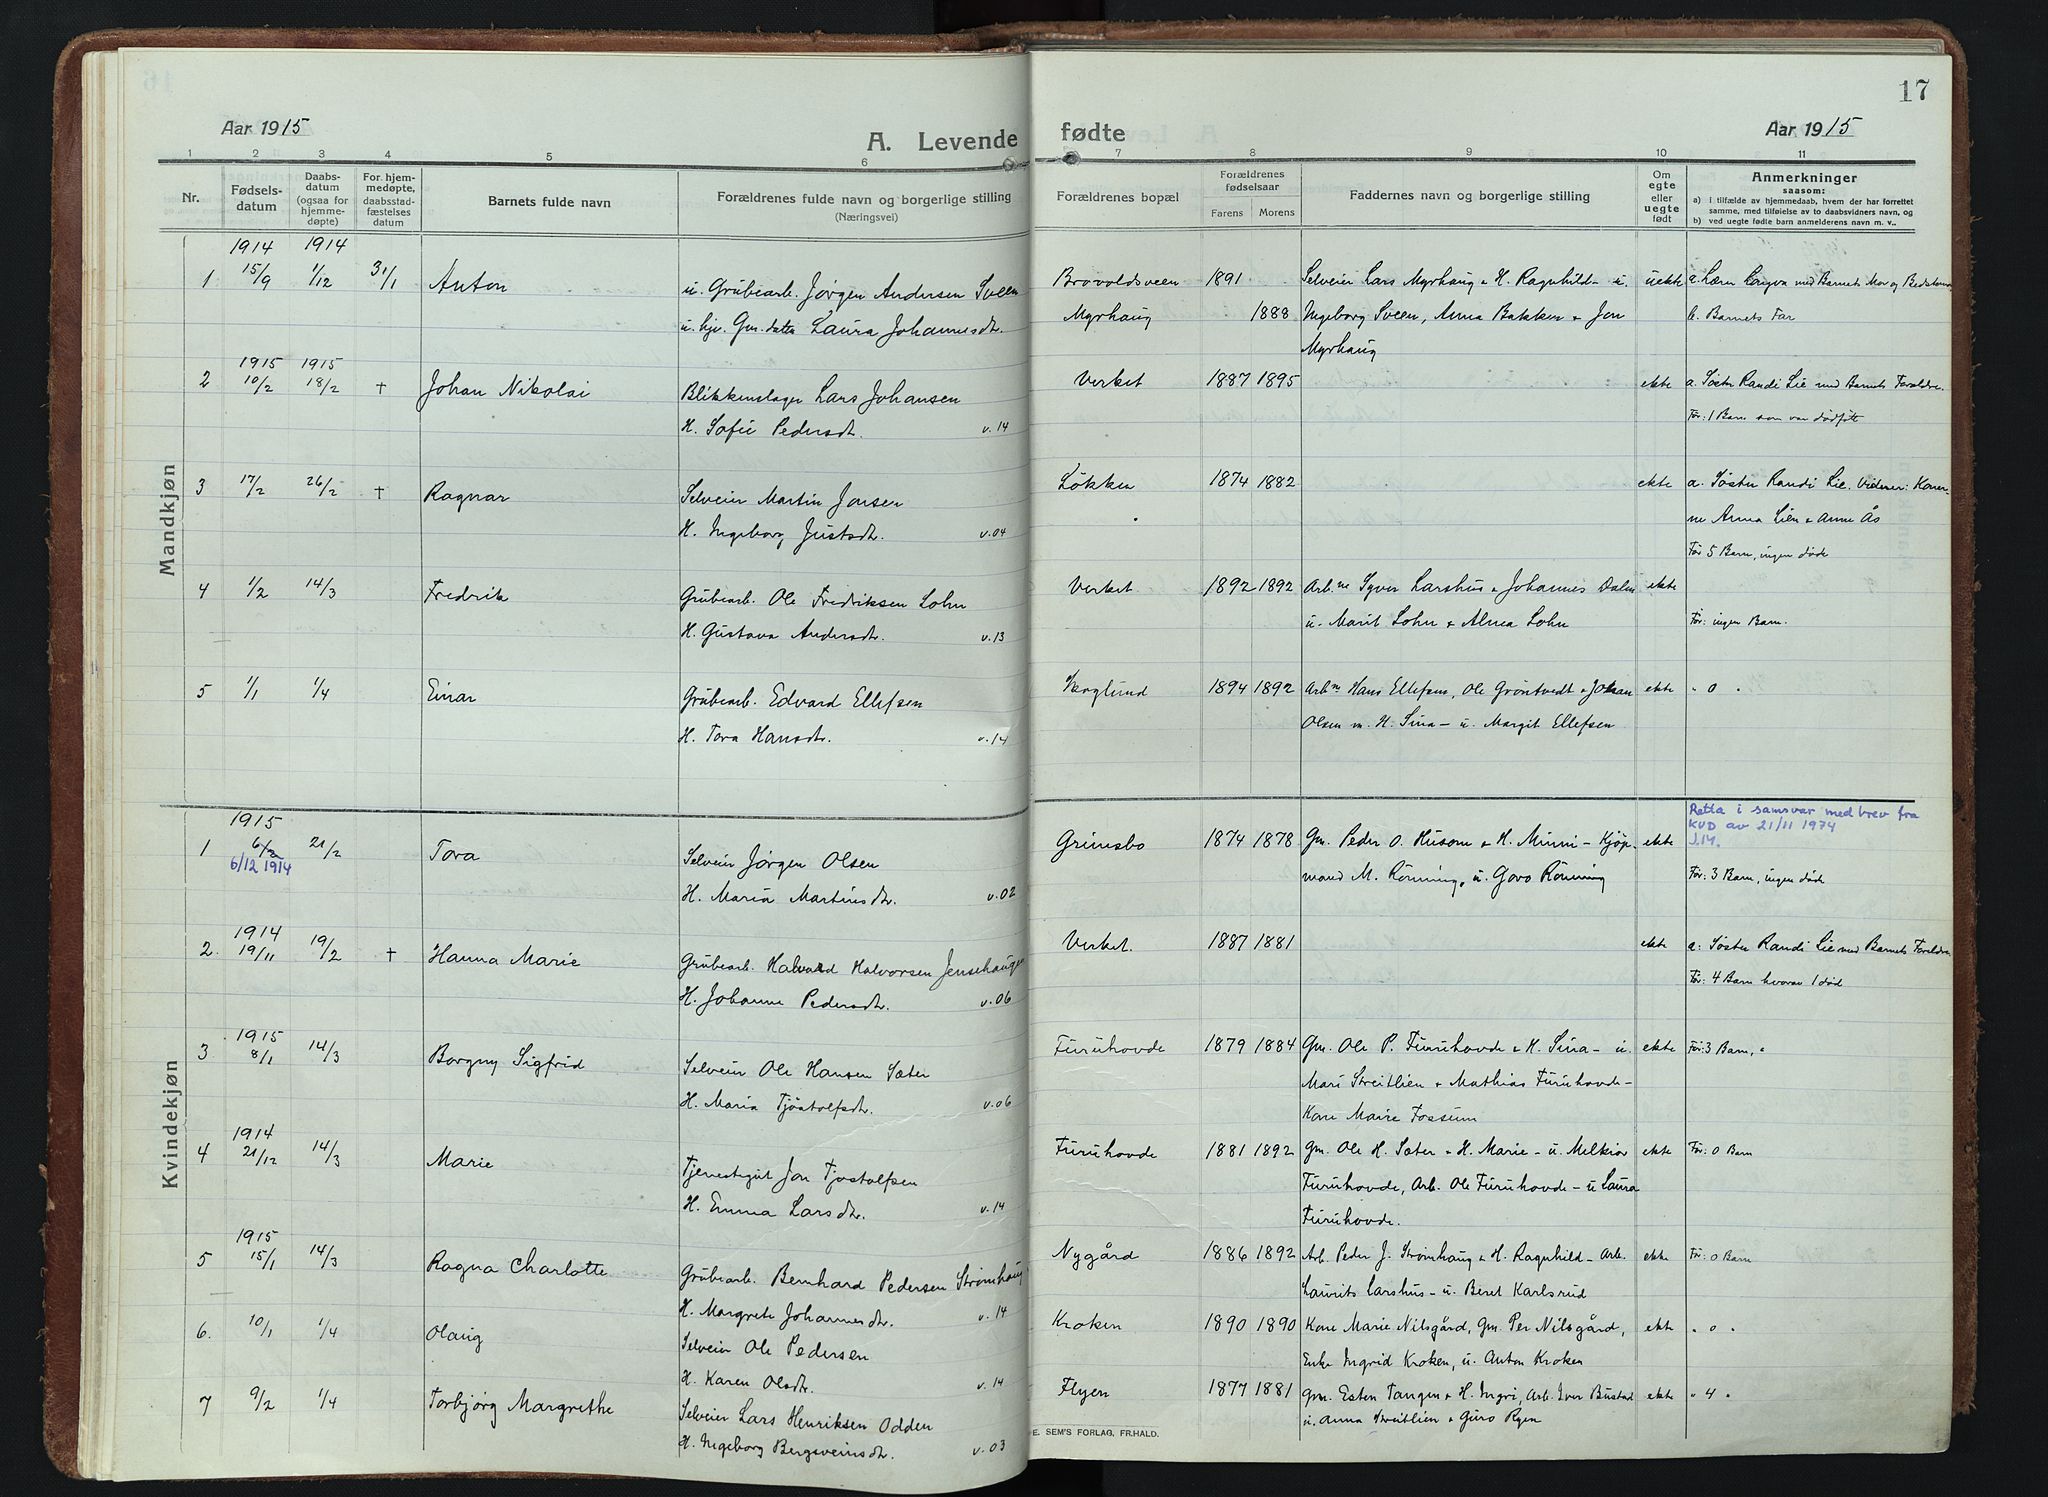 17
Aar 1915 A. Levende fødte Aar 1915
1 2 3 4 5 6 7 8 9 10 11
Nr.
Fødsels-
datum
Daabs-
datum
(ogsaa for
hjemme-
døpte)
For hjem-
medøpte,
daabsstad-
fæstelses
datum
Barnets fulde navn
Forældrenes fulde navn og borgerlige stilling
(Næringsvei)
Forældrenes bopæl
Forældrenes
fødselsaar
Farens Morens
Faddernes navn og borgerlige stilling
Om
egte
eller
uegte
født
Anmerkninger
saasom:
a) i tilfælde av hjemmedaab, hvem der har forrettet
samme, med tilføielse av to daabsvidners navn, og
b) ved uegte fødte barn anmelderens navn m. v..
Mandkjøn
1914 1914
1 15/9 1/12 31/1 Anton u. Grubearb. Jørgen Andersen Sveen Brovoldsveen 1891 Selveier Lars Myrhaug & H. Ragnhild - u. uekte a. Lærer med Barnets Mor og
u. hjv. Gm. datter Laura Johannesdtr. Myrhaug 1888 Ingeborg Sveen, Anna Bakken & Jon b. Barnets Far
Myrhaug
1915 1915
2 10/2 18/2 + Johan Nikolai Blikkenslager Lars Johansen Verket 1887 1895 ekte a. Søster Randi Lie med Barnets Forældre.
H. Sofie Pedersdtr. v. 14 Før: 1 Barn som var dødfött
3 17/2 26/2 + Ragnar Selveier Martin Jonsen Lökken 1874 1882 ekte a. Søster Randi Lie. Vidner: Koner-
H. Ingeborg Justsdtr. v. 04 ne Anna Lien & Anne Ås
Før 5 Barn, ingen døde
4 1/2 14/3 Fredrik Grubearb. Ole Fredriksen Lohn Verket 1892 1892 Arb.ne Syver Larshus & Johannes Dalen ekte
H. Gustava Andersdtr. v. 13 u. Marit Lohn & Alma Lohn Før: ingen Barn.
5 1/1 1/4 Einar Grubearb. Edvard Ellefsen Skoglund 1894 1892 Arb.ne Hans Ellefsen, Ole Gröntvedt & Johan ekte " 0 "
H. Tora Hansdtr. v. 14 Olsen m. H. Sina - u. Margit Ellefsen
Kvindekjøn
Retta i samsvar med brev fra
KUD av 21/11 1974
J.M.
1915
1 6/2 21/2 Tora Selveier Jörgen Olsen Grimsbo 1874 1878 Gm. Peder O. Husom & H. Minni - Kjøp- ekte
6/12 1914
H. Maria Martinsdtr. v. 02 mand M. Rönning, u. Goro Rönning Før: 3 Barn, ingen døde
1914
2. 19/11 19/2 + Hanna Marie Grubearb. Halvard Halvorsen Jensehaugen Verket. 1887 1881 ekte a: Søster Randi Lie med Barnets Forældre.
H. Johanne Pedersdtr. v. 06 Før: 4 Barn hvorav 1 död
1915
3 8/1 14/3 Borgny Sigfrid Selveier Ole Hansen Sæter Furuhovde 1879 1884 Gm. Ole P. Furuhovde & H. Sina - u. ekte Før: 3 Barn, "
H. Maria Tjöstolfsdtr. v. 06 Mari Streitlien & Mathias Furuhovde -
Kone Marie Fossum
1914
4 21/12 14/3 Marie Tjenestegut Jon Tjostolfsen Furuhovde 1881 1892 Gm. Ole H. Sæter & H. Marie - u. Melkior ekte Før: 0 Barn
H. Emma Larsdtr. v. 14 Furuhovde, Arb. Ole Furuhovde - u Laura
Furuhovde.
1915
5 15/1 14/3 Ragna Charlotte Grubearb. Bernhard Pedersen Strömhaug Nygård 1886 1892 Arb. Peder J. Strömhaug & H. Ragnhild - Arb. ekte Før: 0 Barn
H. Margrete Johannesdtr. v. 14 Laurits Larshus - u. Beret Karlsrud
6. 10/1 1/4 Olaug Selveier Ole Pedersen Kroken 1890 1890 Kone Marie Nilsgård, Gm. Per Nilsgård, ekte " 0 "
H. Karen Olsdtr. v. 14 Enke Ingrid Kroken, u. Anton Kroken
7 9/2 1/4 Torbjørg Margrethe Selveier Lars Henriksen Odden Flyen 1877 1881 Gm. Esten Tangen & H. Ingri, Arb. Iver Bustad ekte " 4 "
H. Ingeborg Bergsveinsdtr. v. 03 u. Anna Streitlien & Guro Ryen
E. SEM'S FORLAG, FR.HALD.